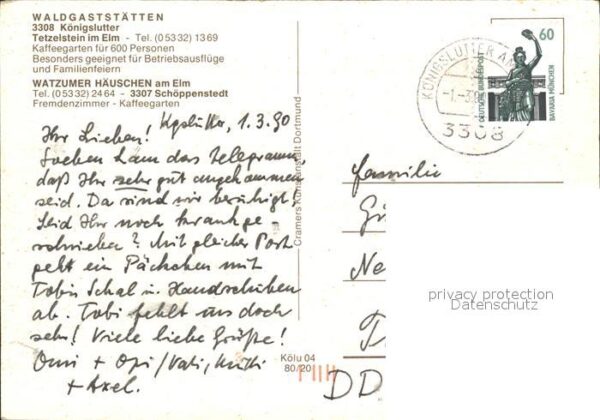 WALDGASTSTÄTTEN
3308 Königslutter
Tetzelstein im Elm - Tel. (05332) 1369
Kaffeegarten für 600 Personen
Besonders geeignet für Betriebsausflüge
und Familienfeiern
WATZUMER HÄUSCHEN am Elm
Tel. (05332) 2464 - 3307 Schöppenstedt
Fremdenzimmer - Kaffeegarten
Ihr Lieben! Kgslutter, 1.3.90
Soeben kam das Telegramm,
daß Ihr sehr gut angekommen
seid. Da sind wir beruhigt!
Seid Ihr noch krankge-
schrieben? Mit gleicher Post
geht ein Päckchen mit
Tobis Schal u. Handschuhen
ab. Tobi fehlt uns doch
sehr! Viele liebe Grüße!
Omi + Opi/Vati, Mutti
+ Axel.
Cramers Kunstanstalt Dortmund
Kölu 04
80/20
KÖNIGSLUTTER AM
3308
60
DEUTSCHE BUNDESPOST
BAVARIA MÜNCHEN
Familie
DD
privacy protection
Datenschutz